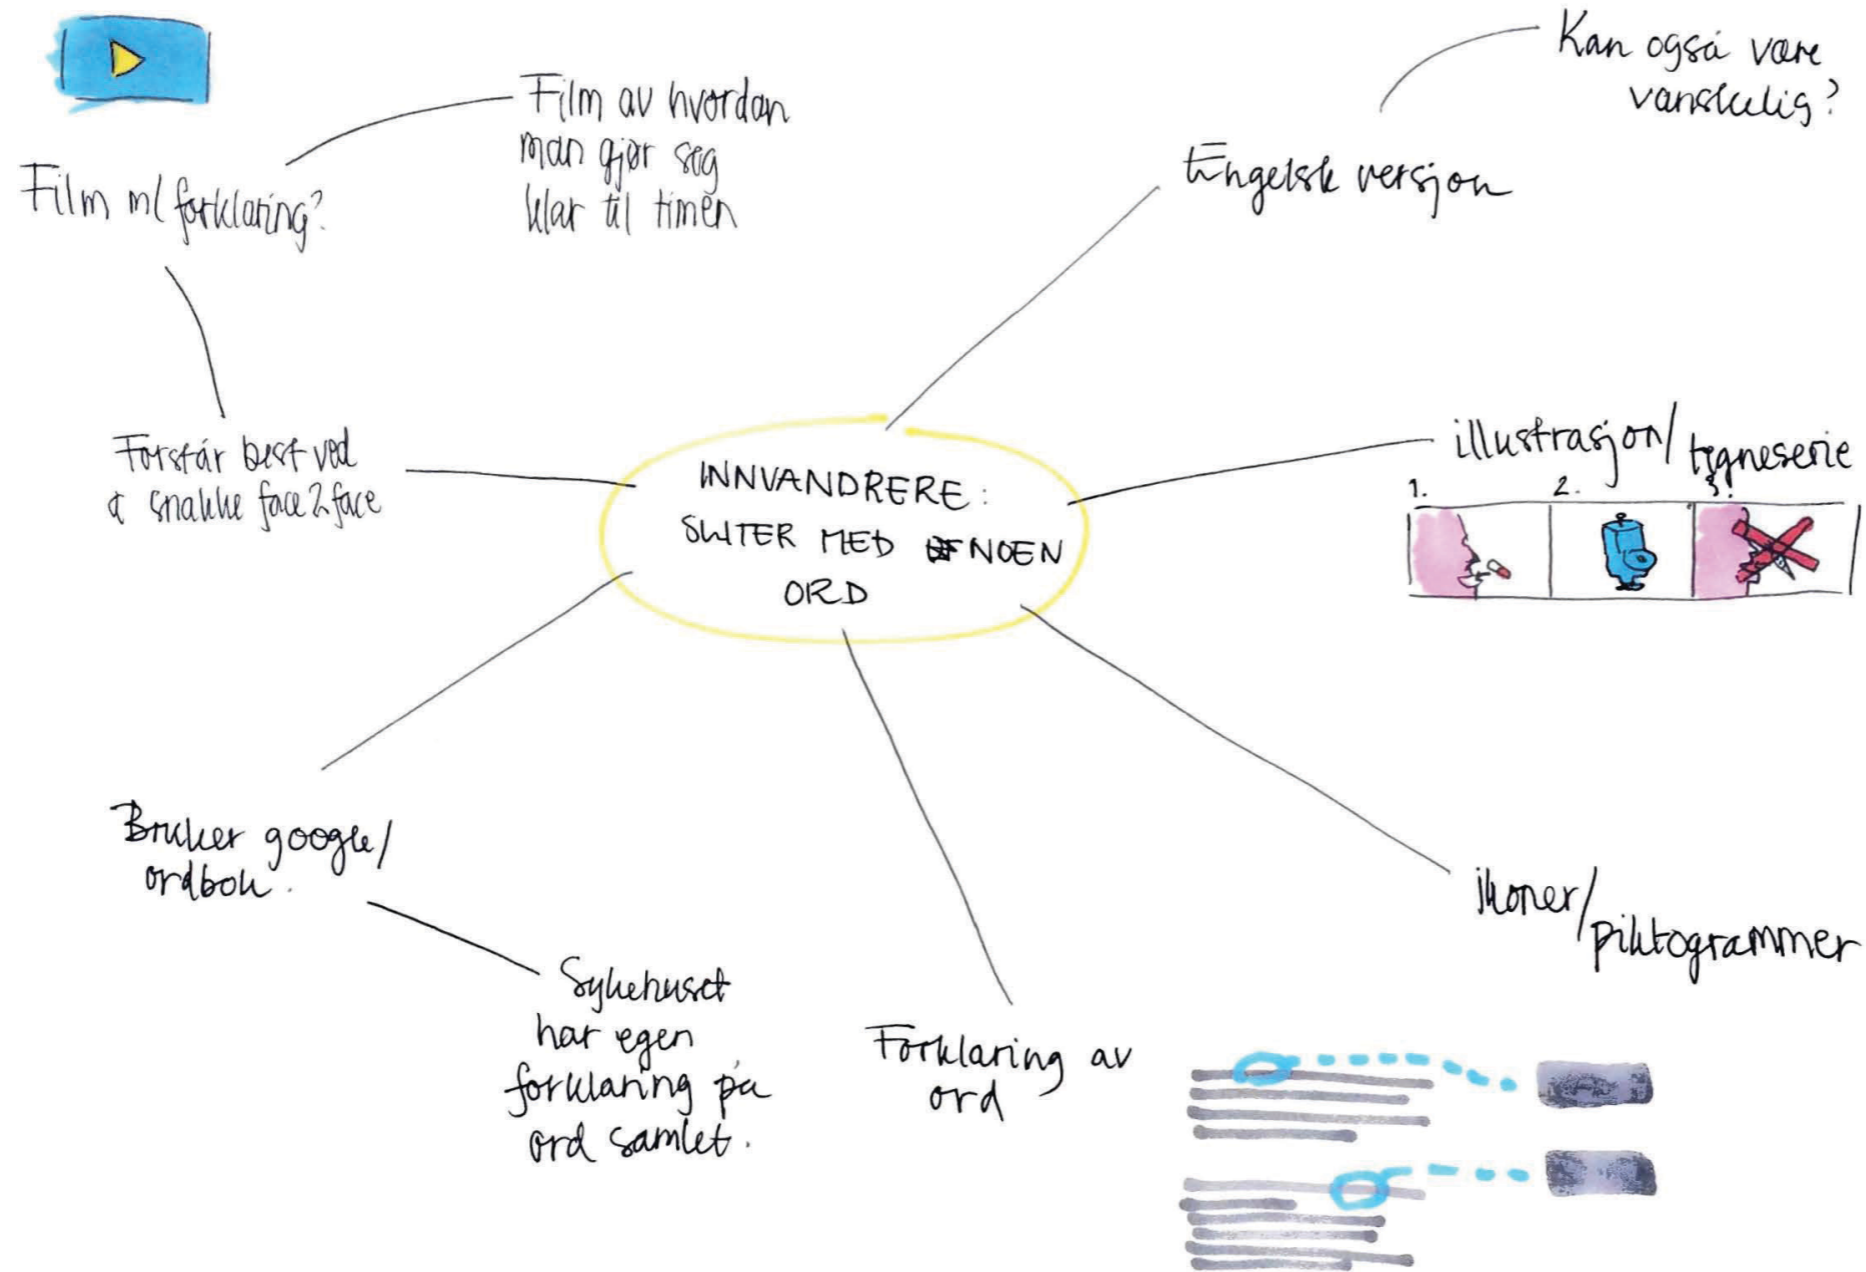 Film m/ forklaring?
Film av hvordan
man gjør seg
klar til timen
Kan også være
vanskelig?
Engelsk versjon
Forstår best ved
å snakke face2face
INNVANDRERE:
SLITER MED NOEN
ORD
illustrasjon/
tegneserie
1. 2. 3.
Bruker google/
ordbok.
Sykehuset
har egen
forklaring på
ord samlet.
Forklaring av
ord
ikoner/
piktogrammer